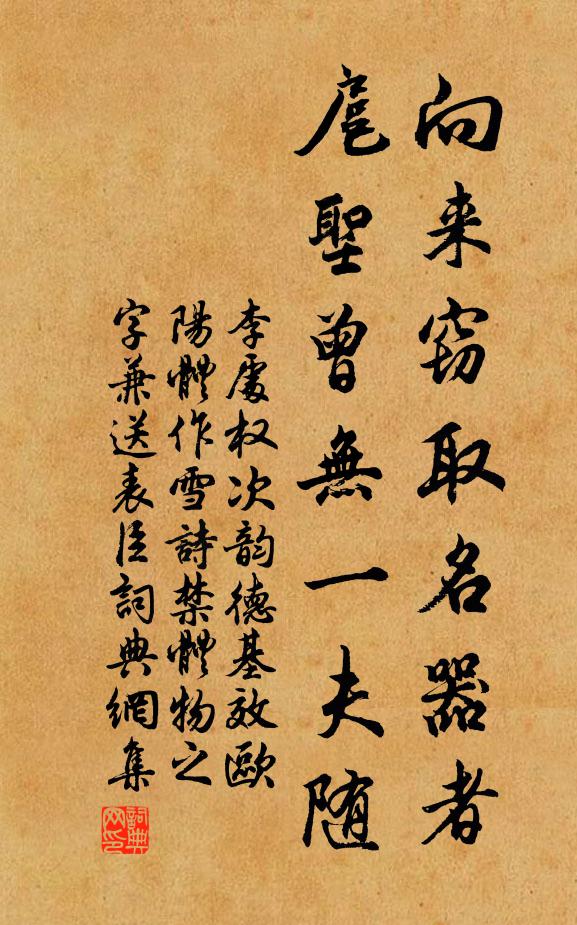 向来窃取名器者
扈聖曾無一夫随
李處权次韵德基效歐
陽體作雪詩禁體物之
字兼送表臣詞典網集
詞典
网印